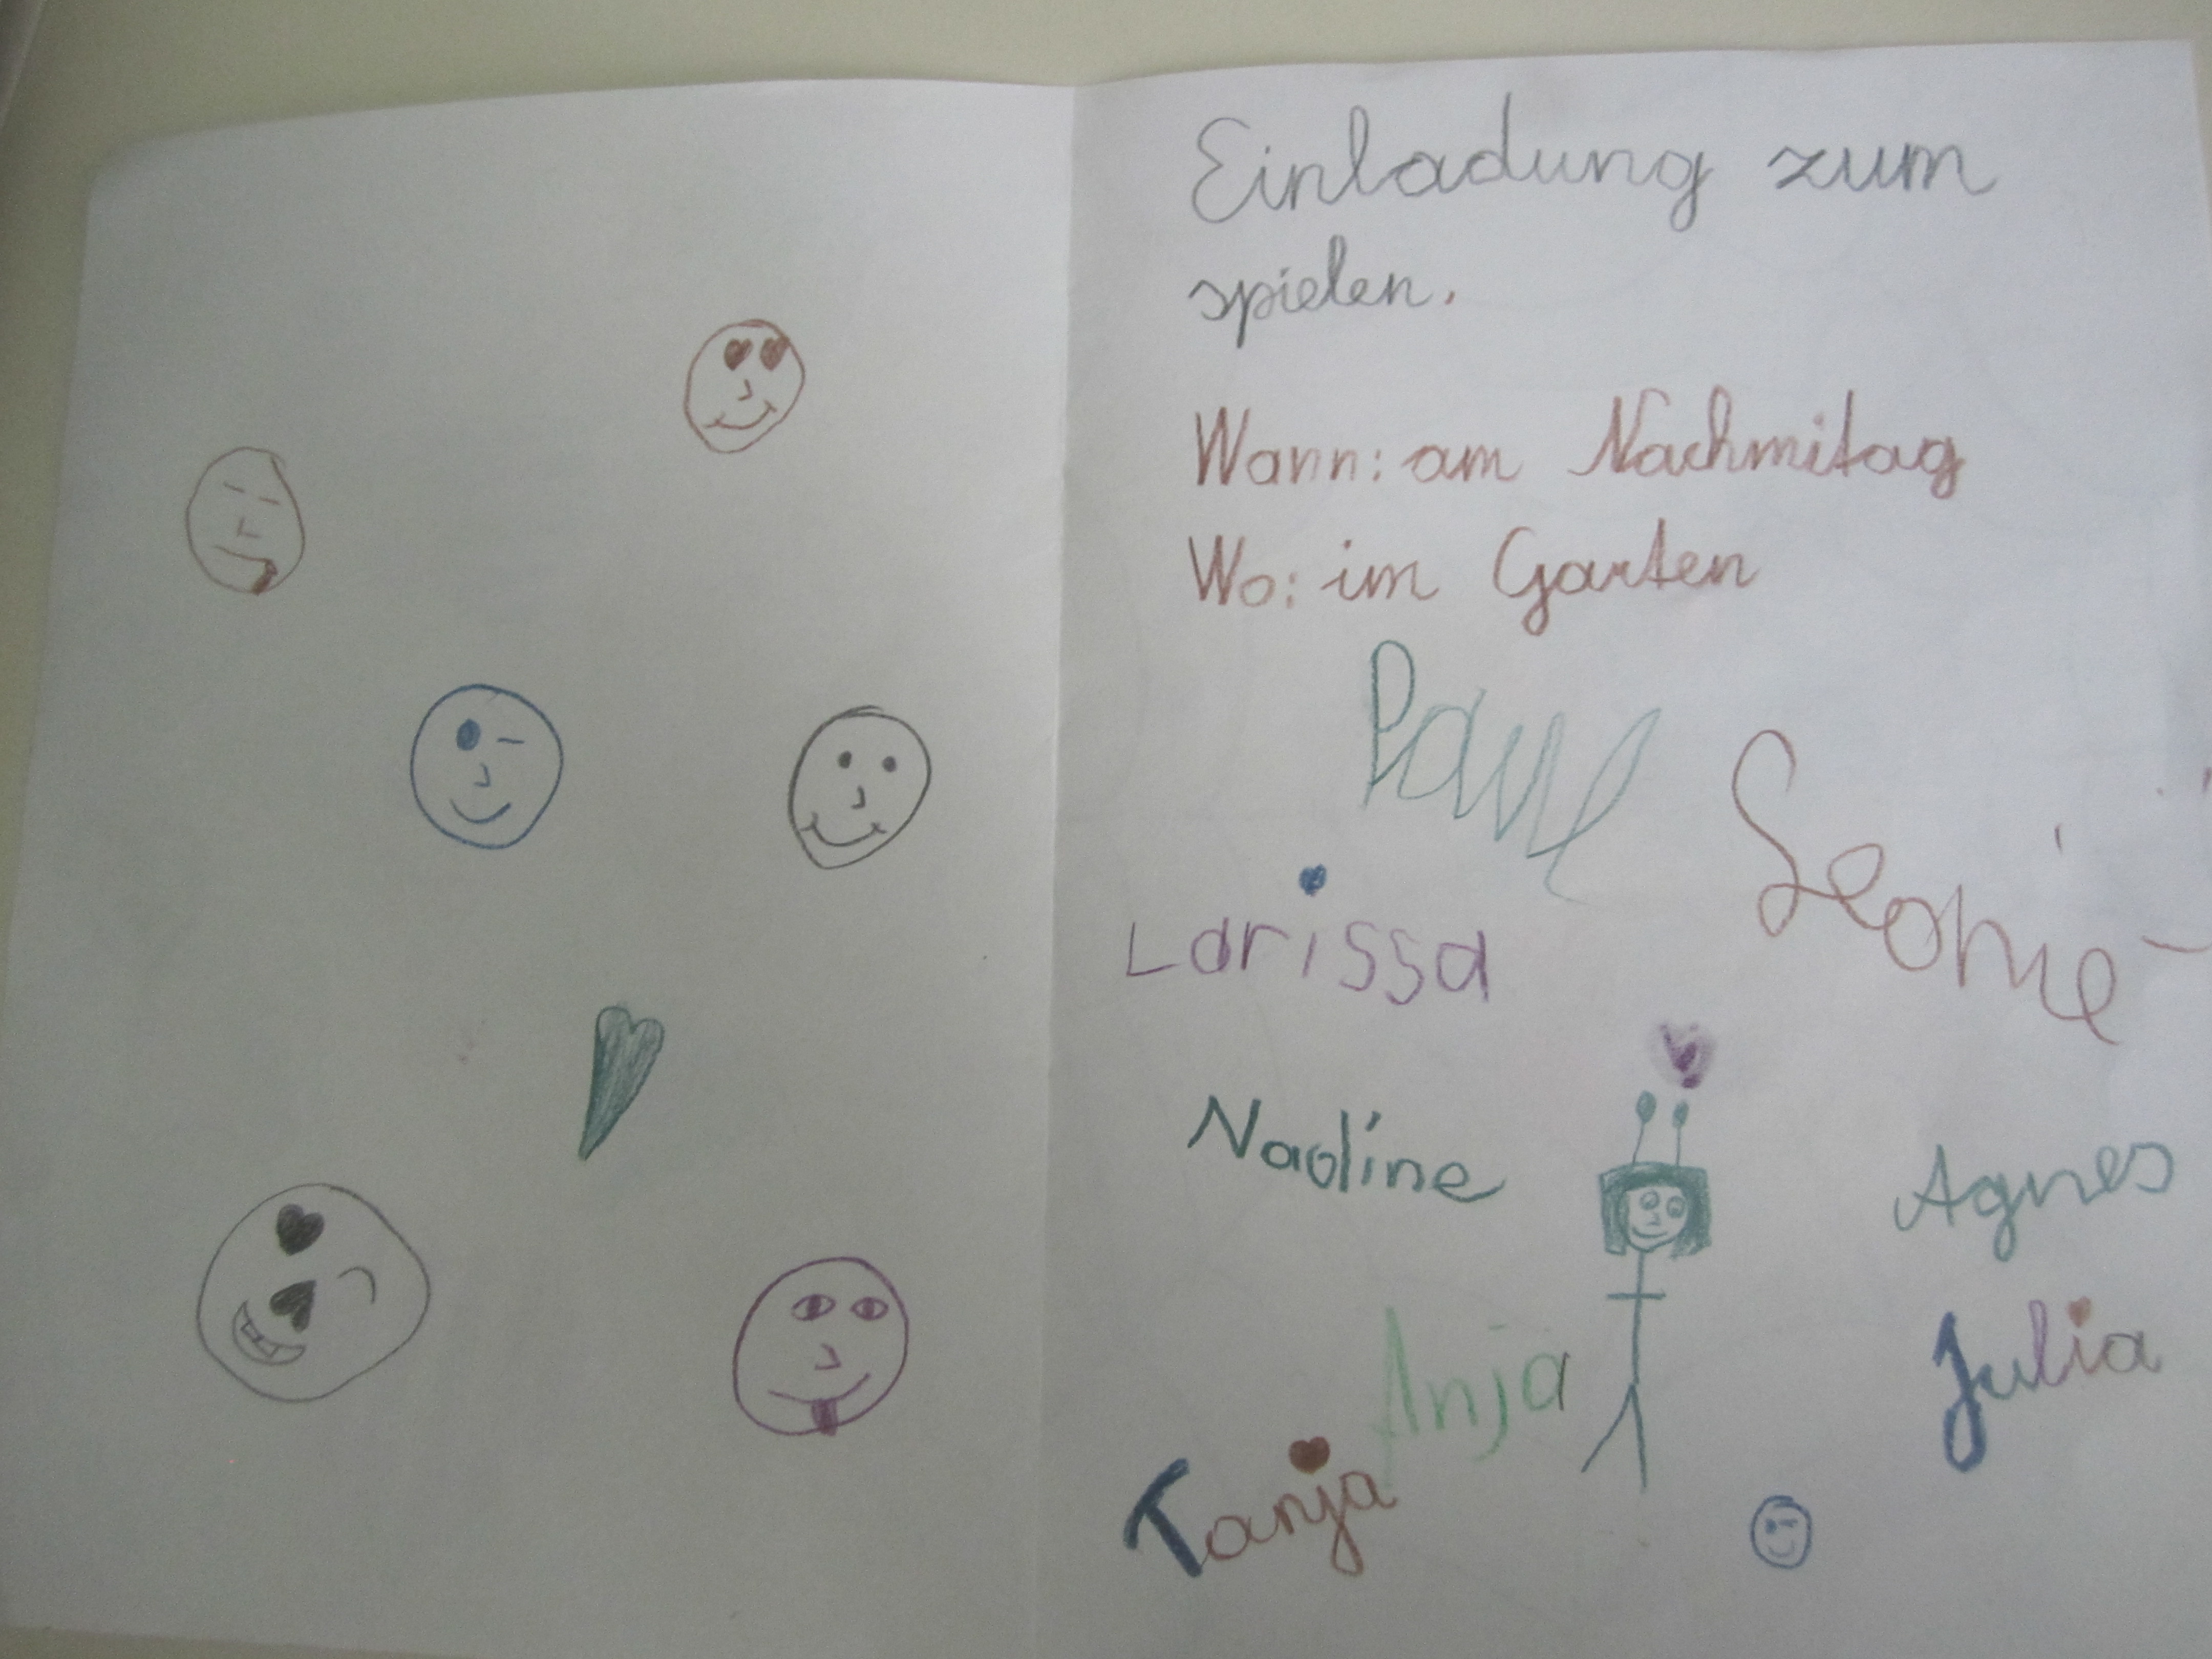 Einladung zum
spielen.
Wann: am Nachmitag
Wo: im Garten
Paul
Leonie
Larissa
Nadine
Agnes
Anja
Julia
Tanja